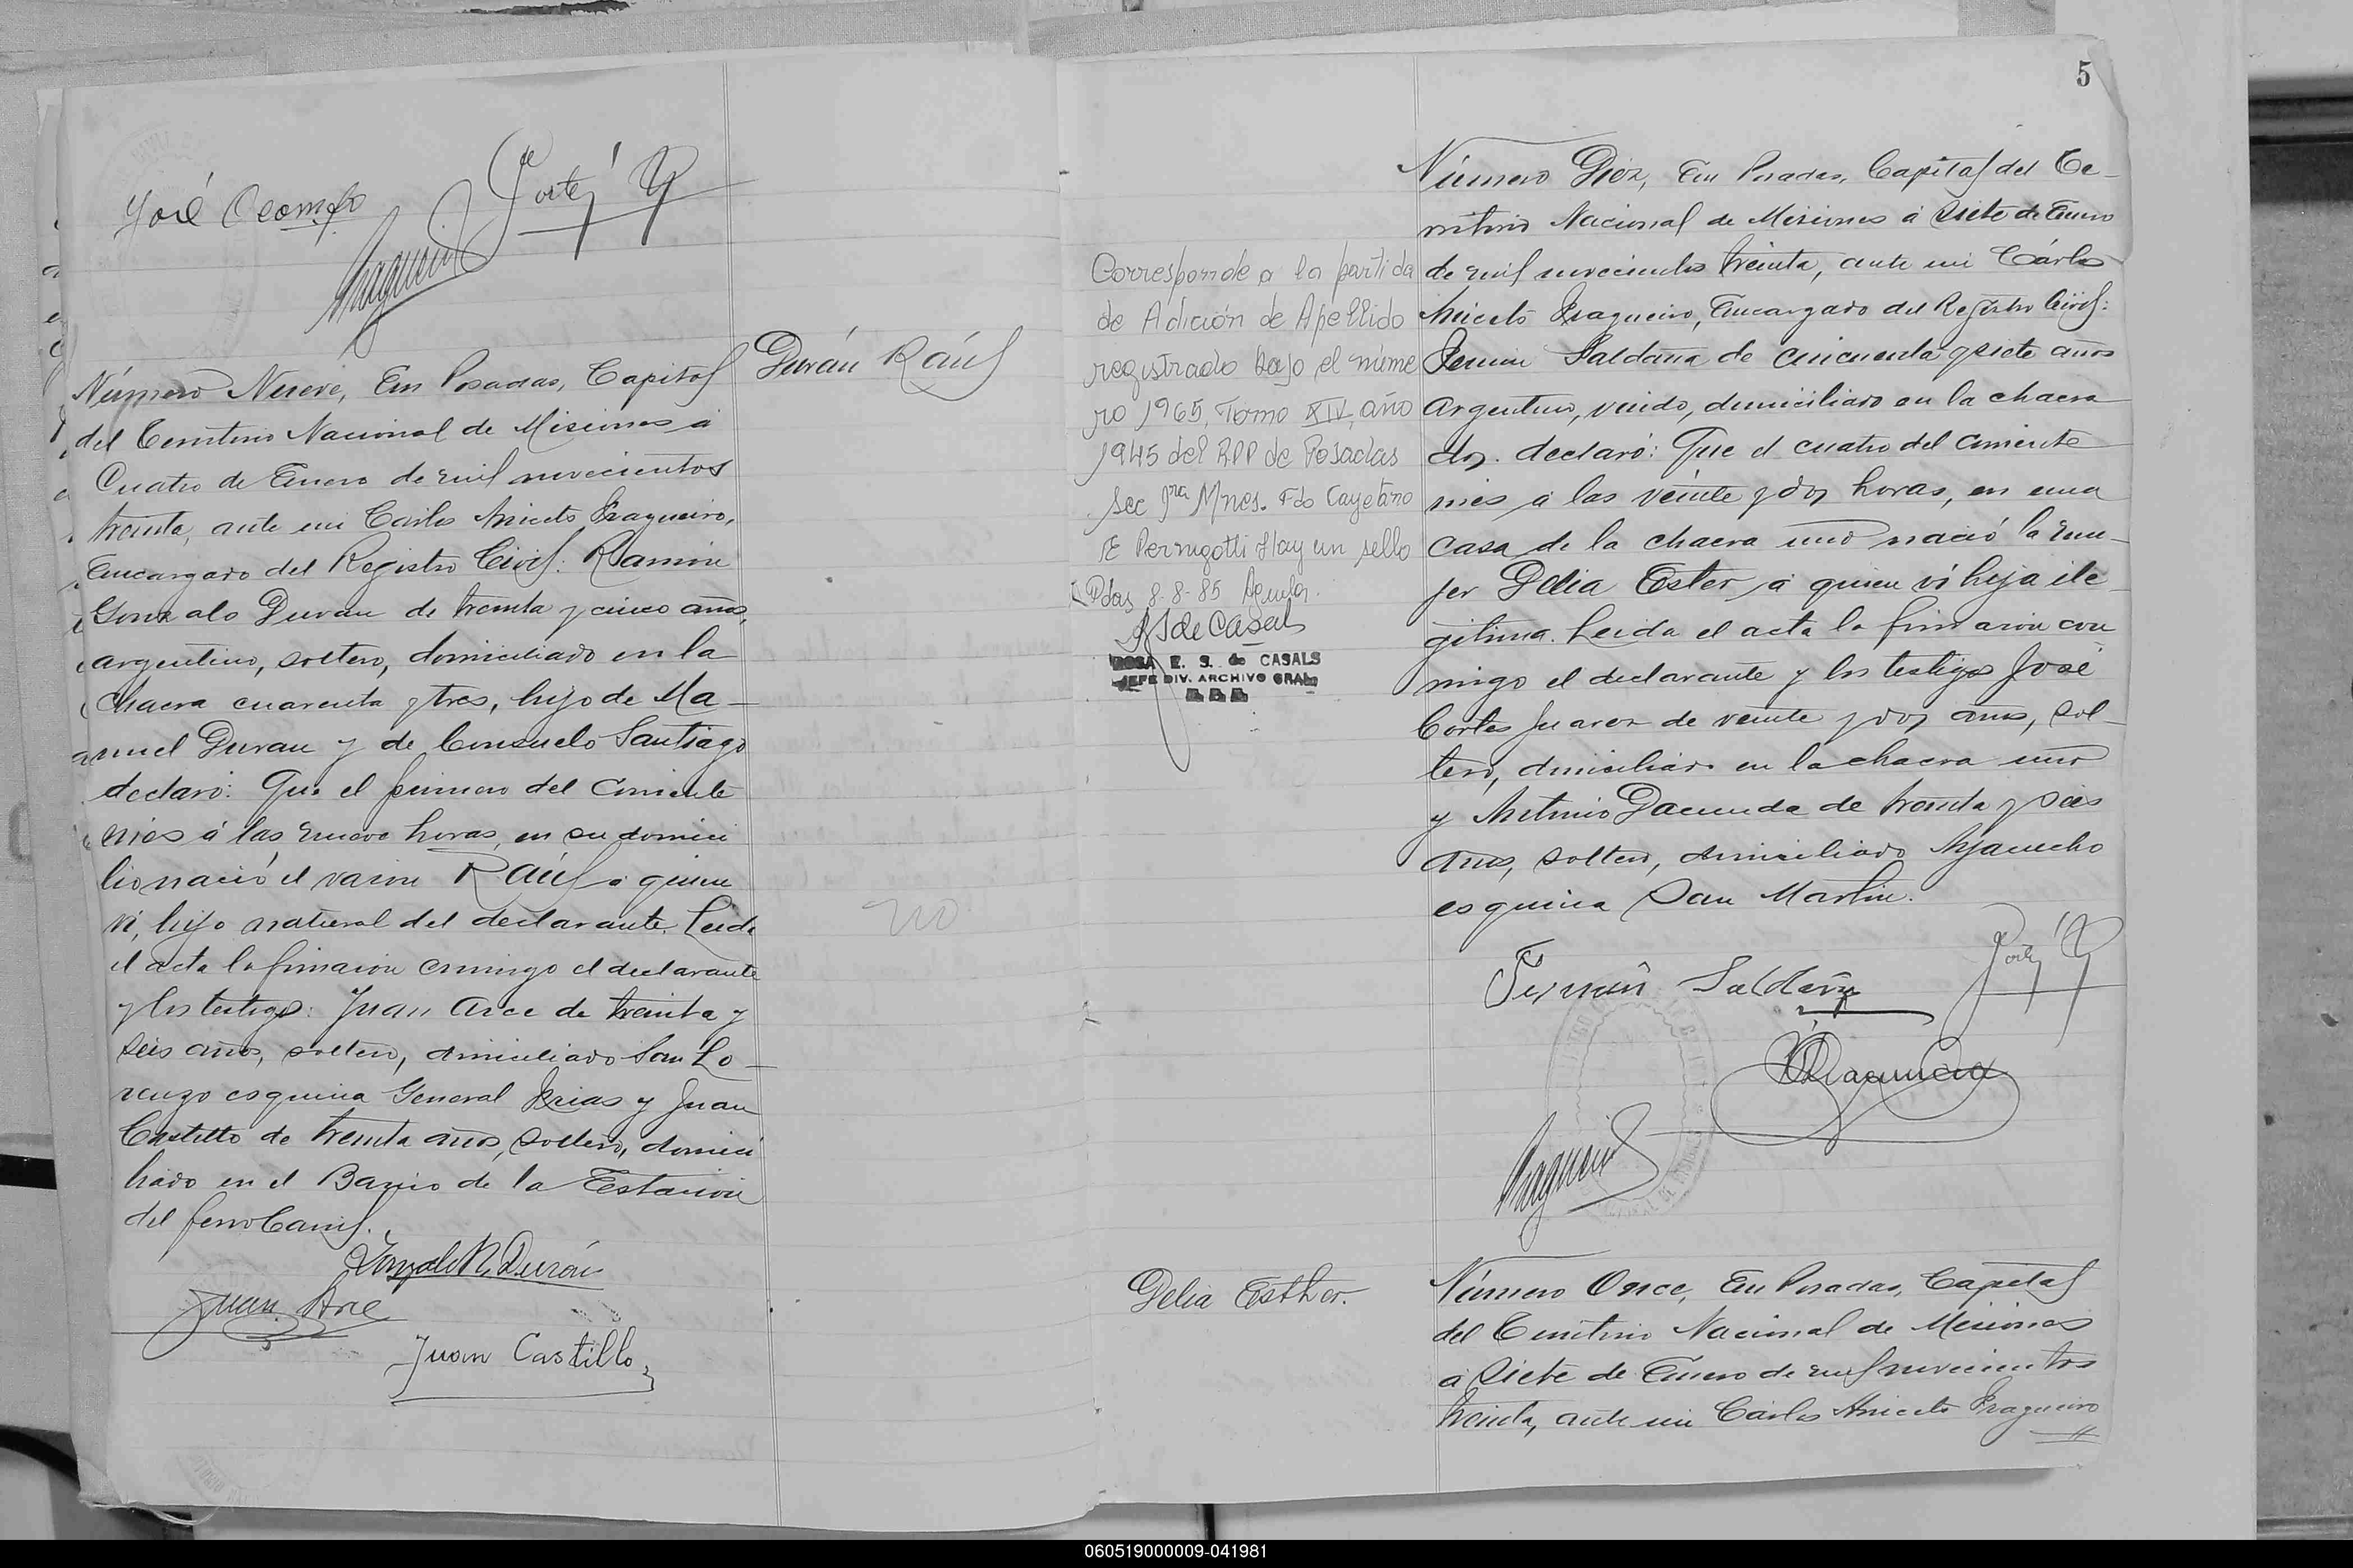 José Ocampo
Cortés J
Número Nueve, En Posadas, Capital
del Territorio Nacional de Misiones a
Cuatro de Enero de mil novecientos
treinta, ante mi Carlos Aniceto Fragueiro,
Encargado del Registro Civil: Ramón
Gonzalo Duran de treinta y cinco años,
argentino, soltero, domiciliado en la
chacra cuarenta y tres, hijo de Ma-
nuel Duran y de Consuelo Santiago
declaró: Que el primero del corriente
mes á las nueve horas, en su domici
lio nació el varón Raúl a quien
ví, hijo natural del declarante. Leida
el acta la firmaron conmigo el declarante
y los testigos: Juan Arce de treinta y
seis años, soltero, domiciliado San Lo-
renzo esquina General Frias y Juan
Castillo de treinta años, soltero, domici
liado en el Barrio de la Estación
del ferro Carril.
Gonzalo R. Durán
Juan Arce
Juan Castillo
Durán Raúl
no
5
Corresponde a la partida
de Adición de Apellido
registrado bajo el núme
ro 1965, Tomo XIV, año
1945 del RPP de Posadas
Sec 1ra Mnes. Fdo Cayetano
E Perugotti Hay un sello
Pdas 8-8-85
RS de Casals
ROSA E. S. de CASALS
JEFE DIV. ARCHIVO GRAL
Número Diez, En Posadas, Capital del Te-
rritorio Nacional de Misiones á Siete de Enero
de mil novecientos treinta, ante mi Cárlos
Aniceto Fragueiro, Encargado del Registro Civil:
Fermin Saldaña de cincuenta y siete años
Argentino, viudo, domiciliado en la chacra
dos. declaró: Que el cuatro del corriente
mes á las veinte y dos horas, en una
casa de la chacra uno nació la mu-
jer Delia Ester á quien ví hija ile-
gitima. Leida el acta la firmaron con
migo el declarante y los testigos José
Cortes Juarez de veinte y dos años, sol-
tero, domiciliado en la chacra uno
y Antonio Dacunda de treinta y seis
años, soltero, domiciliado Ayacucho
esquina San Martin.
Fermín Saldaña
Delia Esther.
Número Once, En Posadas, Capital
del Territorio Nacional de Misiones
á Siete de Enero de mil novecientos
treinta, ante mi Cárlos Aniceto Fragueiro
060519000009-041981